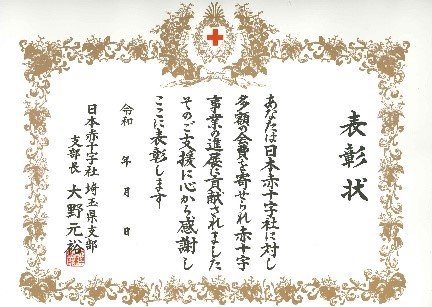 表彰状
あなたは日本赤十字社に対し
多額の会費を寄せられ赤十字
事業の進展に貢献されました
そのご支援に心から感謝し
ここに表彰します
令和　年　月　日
日本赤十字社 埼玉県支部
支部長 大野元裕